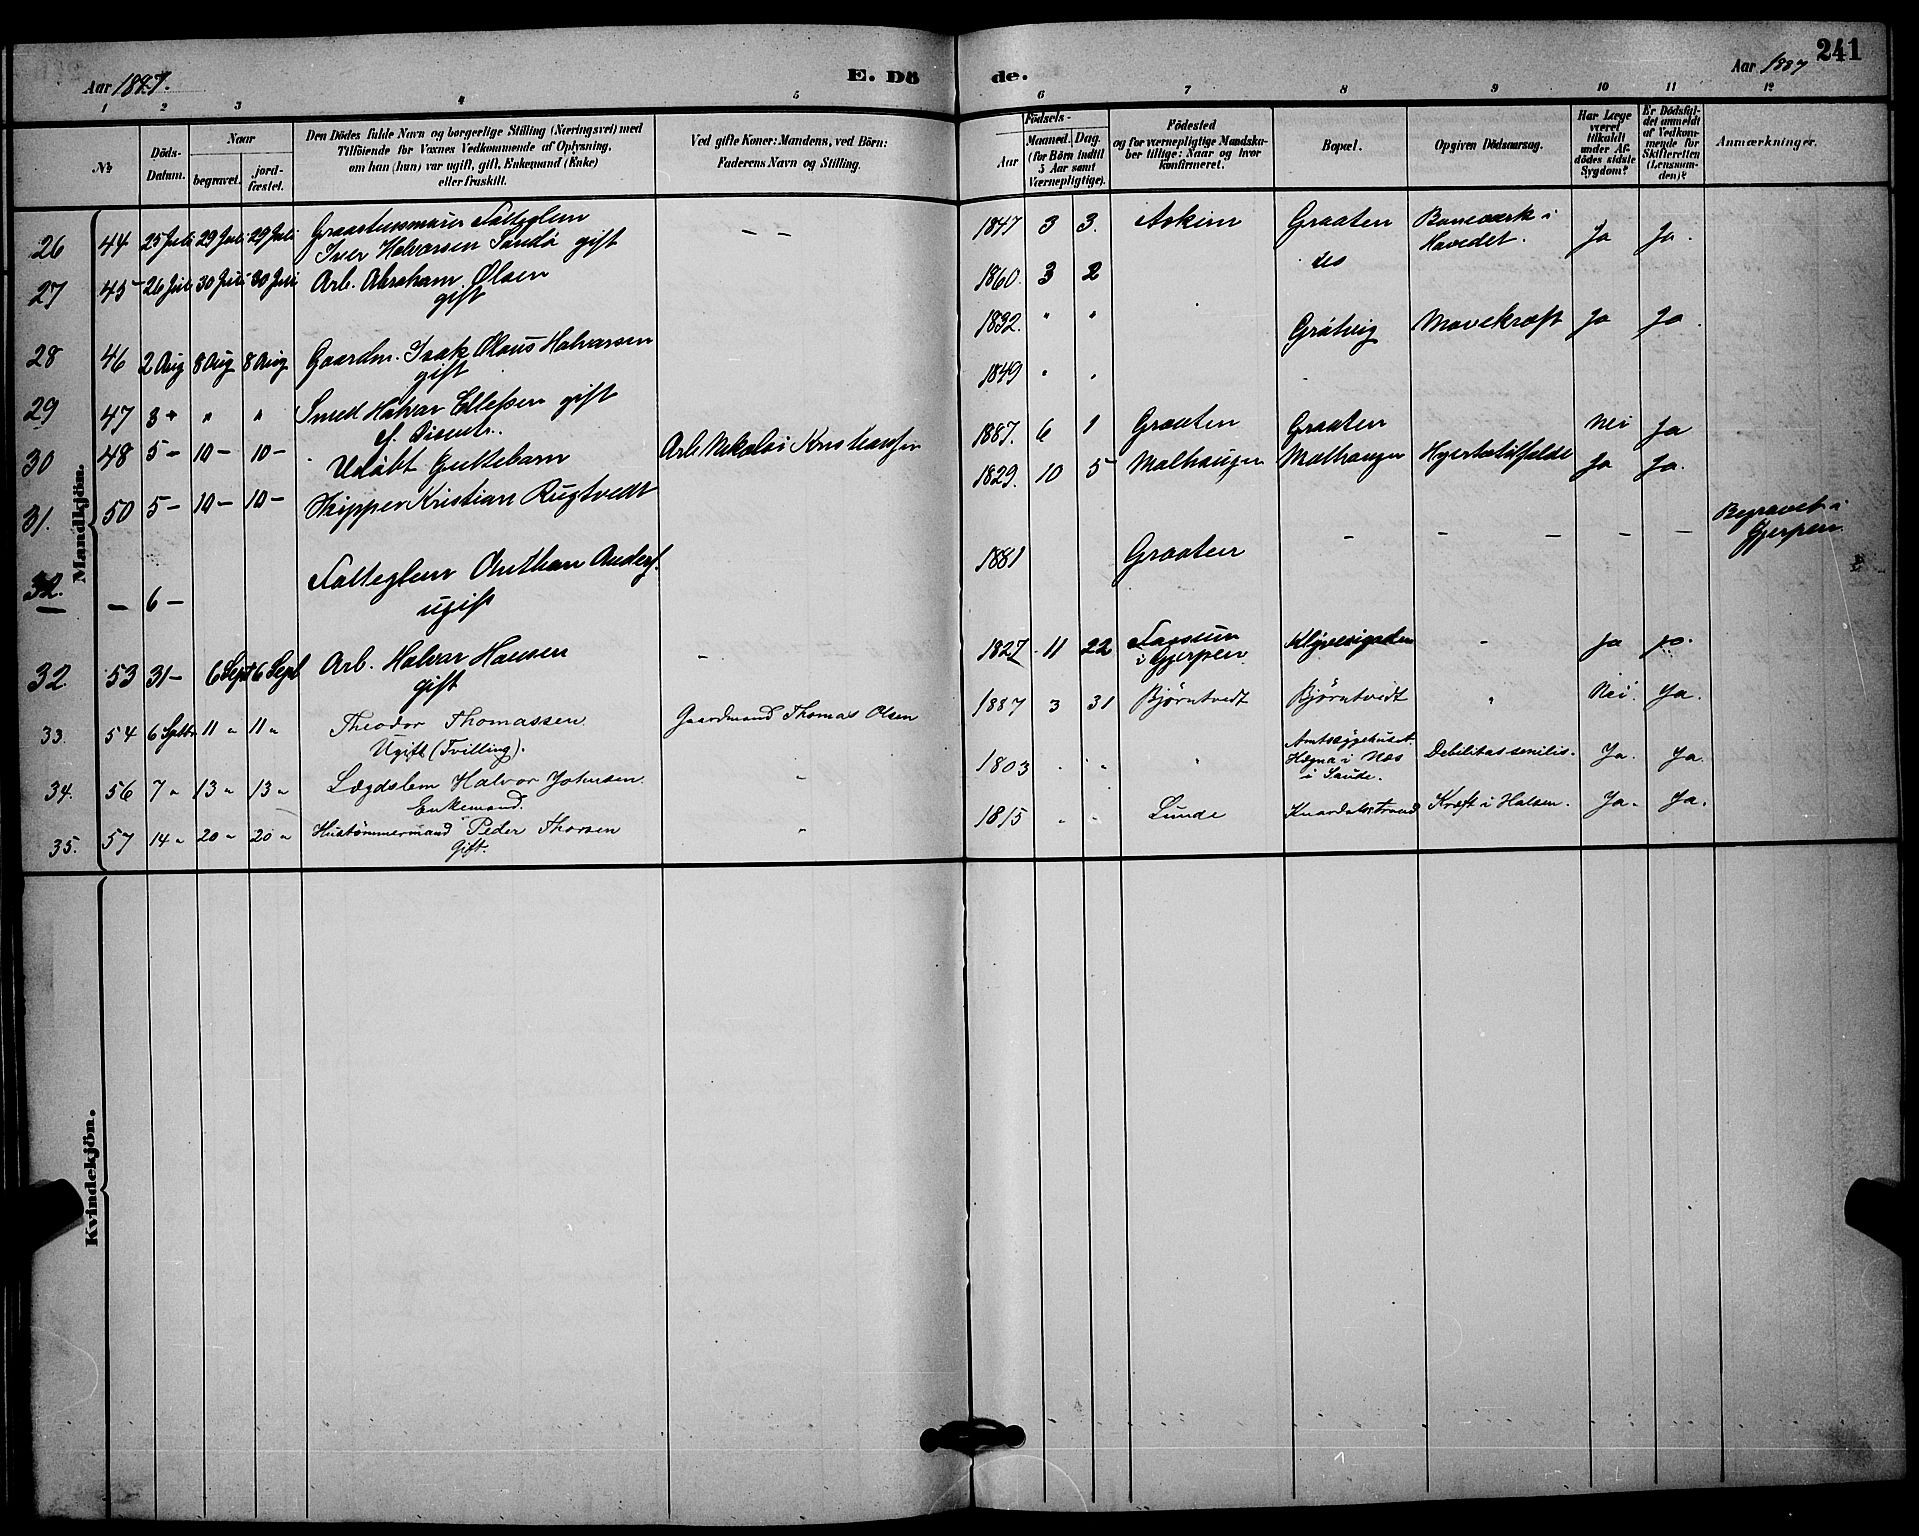 241
Aar 1887.
E. Dö
de.
Aar 1887
1 2 3 4 5 6 7 8 9 10 11 12
№
Döds-
Datum.
Naar
begravet.
jord-
fæstet.
Den Dödes fulde Navn og borgerlige Stilling (Næringsvei) med
Tilföiende for Voxnes Vedkommende af Oplysning,
om han (hun) var ugift, gift, Enkemand (Enke)
eller fraskilt.
Ved gifte Koner: Mandens, ved Börn:
Faderens Navn og Stilling.
Födsels-
Aar
Maaned.
Dag.
(for Börn indtil
5 Aar samt
Værnepligtige).
Födested
og for værnepligtige Mandska-
ber tillige: Naar og hvor
konfirmeret.
Bopæl.
Opgiven Dödsaarsag.
Har Læge
været
tilkaldt
under Af-
dödes sidste
Sygdom?
Er Dödsfal-
det anmeldt
af Vedkom-
mende for
Skifteretten
(Lensman-
den)?
Anmærkninger.
Mandkjön.
26 44 25 Juli 29 Juli 29 Juli Fatteglem
Iver Halvorsen gift — — 1847 3 3. Askim Graaten i
Hovedet. Ja Ja.
27 45 26 Juli 30 Juli 30 Juli Arb. Abraham Olsen
gift 1860. 3 2 do
28 46 2 Aug 8 Aug 8 Aug Gaardm. Isak Olaus Halvorsen
gift 1832. " " Gråtvig Mavekræft Ja Ja.
29 47 3 " " " Smed Halvor Ellefsen gift
1849 " "
30 48 5 — 10 — 10 — Udöbt Guttebarn Arb. Nikolai Kristiansen 1887. 6 1 Graaten Graaten Nei Ja
31. 50 5 — 10 — 10 — Skipper Kristian Rugtvedt 1829. 10 5 Molhaugen Molhaugen Hjerteslagtilfælde Ja Ja.
32. — 6 — Fatteglem Anders.
ugift 1881 Graaten — — — — — Begravet i
Gjerpen.
32. 53 31 — 6 Sept 6 Sept Arb. Halvor Hansen
gift — 1827 11 22 Fossum
i Gjerpen Klyvesigaden — Ja Ja.
33. 54 6 Septbr 11 " 11 " Theodor Thomassen.
Ugift (Tvilling). Gaardmand Thomas Olsen 1887 3 31 Bjørntvedt Bjørntvedt " Nei. Ja.
34. 56 7 " 13 " 13 " Lægdslem Halvor Johnsen.
Enkemand. " 1803 " " " Amtssygehuset
Hægna i Næs
i Saude. Debilitas senilis. Ja. Ja.
35. 57 14 " 20 " 20 " Hustömmermand Peder Thorsen
Gift. " 1815 " " Lunde Knardalsstrand Kræft i Halsen. Ja. Ja.
Kvindekjön.